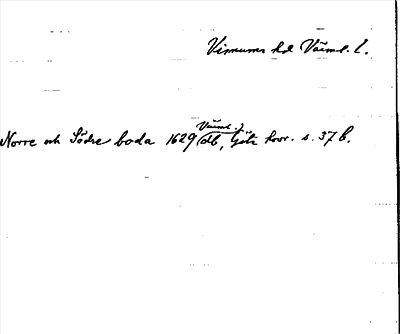 Visnums hd Värml. l.
Värml. j.
Norre och Södre boda 1629 db, Göta hovr. s. 37 b.